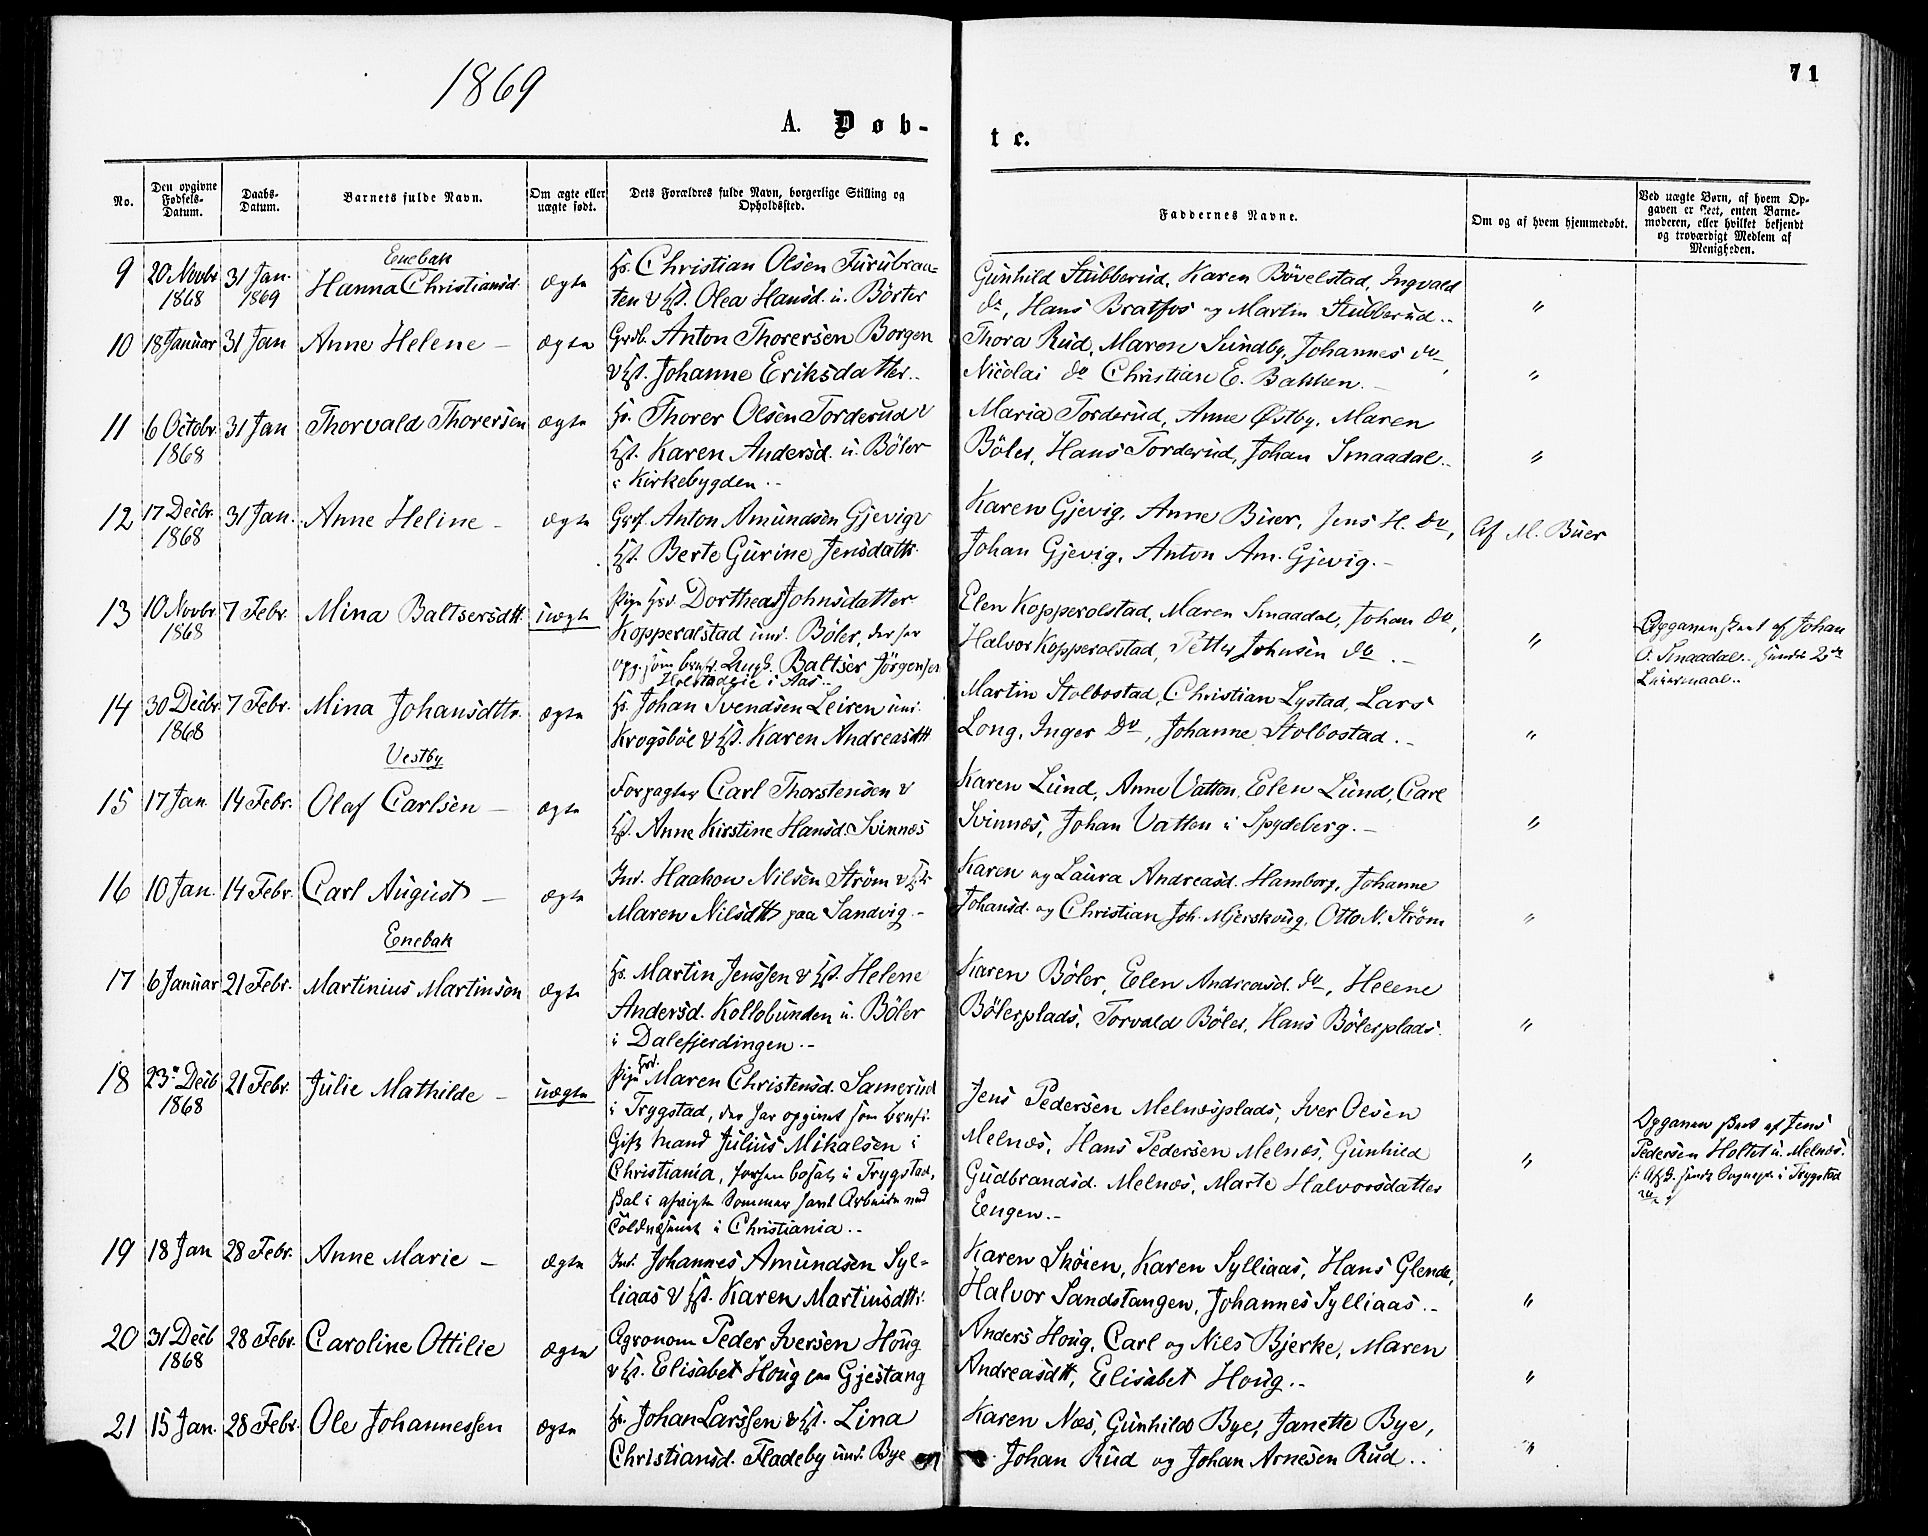 1869
71
A. Døb-
te.
No.
Den opgivne Fødsels-Datum.
Daabs-Datum.
Barnets fulde Navn.
Om ægte eller uægte født.
Dets Forældres fulde Navn, borgerlige Stilling og Opholdssted.
Faddernes Navne.
Om og af hvem hjemmedøbt.
Ved uægte Børn, af hvem Opgaven er skeet, enten Barnemoderen, eller hvilket bekjendt og troværdigt Medlem af Menigheden.
Enebak
9 20 Novbr 1868 31 Jan. 1869 Hanna Christiansd. ægte
Hs. Christian Olsen Furubraa-
ten & Hst. Olea Hansd. u. Börter
Gunhild Stubberud, Karen Bövelstad, Ingvald
do, Hans Bratfos og Martin Stubberud.. "
10 18 Januar 31 Jan Anne Helene – ægte
Grdb. Anton Thorersen Borgen
& Hst. Johanne Eriksdatter..
Thora Rud, Maren Sundby, Johannes do,
Nicolai do Christian E. Bakken. – "
11 6 Octobr 1868 31 Jan Thorvald Thorersen ægte
Hs. Thorer Olsen Torderud &
Hst. Karen Andersd. u. Böler
i Kirkebygden. –
Maria Torderud, Anne Østby, Maren
Böler, Hans Torderud, Johan Smaadal.. "
12 17 Decbr. 1868 31 Jan. Anne Heline – ægte
Grdf. Anton Amundsen Gjevig &
Hst. Berte Gurine Jensdattr.
Karen Gjevig, Anne Buer, Jens H. do,
Johan Gjevig, Anton Am. Gjevig. –
Af M. Buer
13 10 Novbr 1868 7 Febr. Mina Baltsersdtt. uægte
Pige Hsd Dorthea Johnsdatter
Kopperolstad und. Böler, der har
opg. som brnf. Ungk. Baltser Jörgensen
i Aas..
Elen Kopperolstad, Maren Smaadal, Johan do,
Halvor Kopperolstad, Petter Johnsen do. – "
Opgaven skeet af Johan
O. Smaadal. hendes 2det
Leiermaal..
14 30 Decbr. 1868 7 Febr. Mina Johansdttr. ægte
Hs. Johan Svendsen Leiren und.
Krogsböl & Hst. Karen Andreasdtt
Martin Stolbostad, Christian Lystad, Lars
Long, Inger do, Johanne Stolbostad. – "
Vestby
15 17 Jan 14 Febr. Olaf Carlsen – ægte
Forpagter Carl Thorstensen &
Hst. Anne Kirstine Hansd. Svinnæs
Karen Lund, Anne Vatten, Elen Lund, Carl
Svinnæs, Johan Vatten i Spydeberg. – "
16 10 Jan. 14 Febr. Carl August – ægte
Ind. Haakon Nilsen Ström & Hst.
Maren Nilsdtt paa Sandvig. –
Karen og Laura Andreasd. Hamborg, Johanne
Johansd. og Christian Joh. Mjerskoug, Otto N. Ström "
Enebak
17 6 Januar 21 Febr. Martinius Martinsen ægte
Hs. Martin Jenssen & Hst. Helene
Andersd. Kollobunden u. Böler
i Dalefjerdingen. –
Karen Böler, Elen Andreasd. do, Helene
Bölerplads, Torvald Böler, Hans Bölerplads. "
18 23. Decb 1868 21 Febr. Julie Mathilde – uægte
Pige Hsd. Maren Christensd. Samerud
i Trygstad, der har opgivet som brnf.:
Gift Mand Julius Mikalsen i
Christiania, forhen bosat i Trygstad,
skal i afvigte Sommer havt Arbeide ved
Toldvæsenet i Christiania. –
Jens Pedersen Melnæsplads, Iver Olsen
Melnæs, Hans Pedersen Melnæs, Gunhild
Gudbrandsd. Melnæs, Marte Halvorsdatter
Engen. –
"
Opgaven skeet af Jens
Pedersen Holtet u. Melnæs.
i Trygstad
19 18 Jan 28 Febr. Anne Marie – ægte
Ind. Johannes Amundsen Syl-
liaas & Hst. Karen Martinsdttr.
Karen Sköien, Karen Sylliaas, Hans Glende,
Halvor Sandstangen, Johannes Sylliaas. – "
20 31 Decb 1868 28 Febr. Caroline Ottilie ægte
Agronom Peder Iversen Houg
& Hst. Elisabet Houg paa Gjestang
Anders Houg, Carl og Nils Bjerke, Maren
Andreasdtt, Elisabet Houg. – "
21 15 Jan. 28 Febr. Ole Johannessen ægte
Hs. Johan Larssen & Hst. Lina
Christiansd. Fladeby und. Bye
Karen Næs, Gunhild Bye, Janette Bye,
Johan Rud og Johan Arnesen Rud.. "